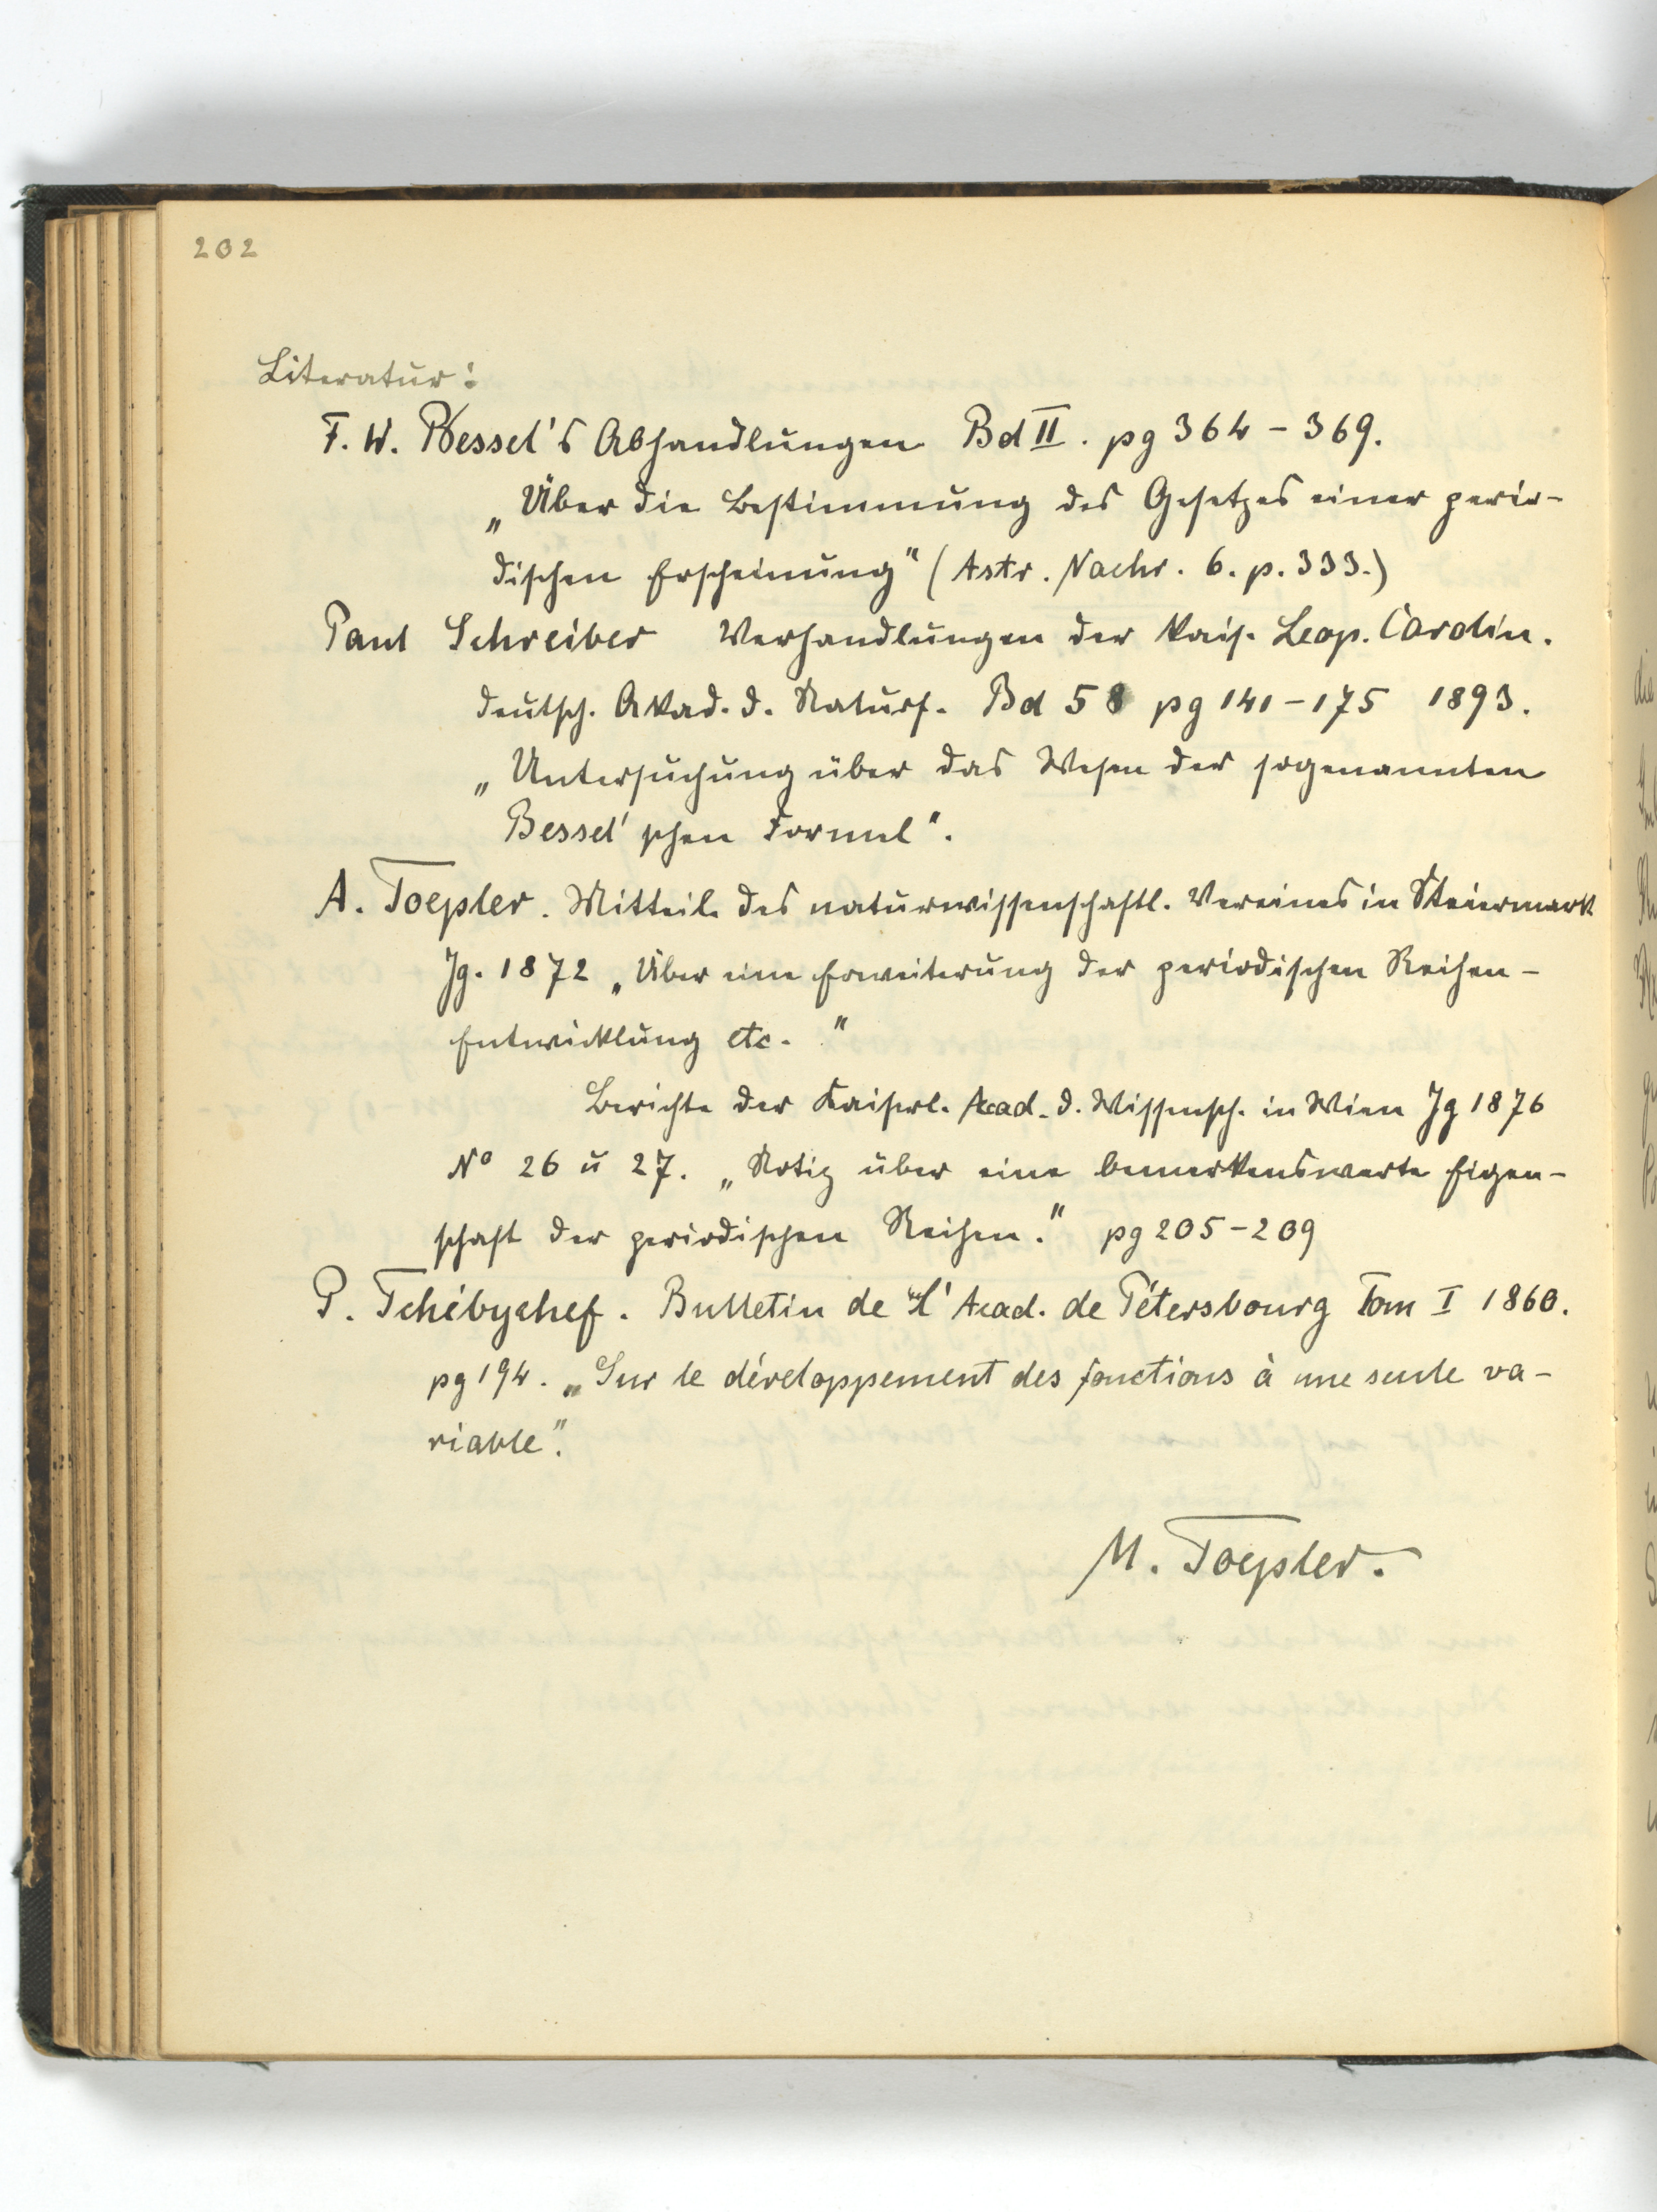 202
Literatur:
F. W. Bessel's Abhandlungen Bd II. pg 364 - 369.
„Über die Bestimmung des Gesetzes einer perio-
dischen Erscheinung" (Astr. Nachr. 6. p. 333.)
Paul Schreiber Verhandlungen der Kais. Leop. Carolin.
deutsch. Akad. d. Naturf. Bd 58 pg 141-175 1893.
„Untersuchung über das Wesen der sogenannten
Bessel'schen Formel".
A. Toepler. Mitteil. des naturwissenschaftl. Vereines in Steiermark
Jg. 1872 „Über eine Erweiterung der periodischen Reihen-
Entwicklung etc. "
Berichte der Kaiserl. Acad. d. Wissensch. in Wien Jg 1876
No 26 u 27. „Notiz über eine bemerkenswerte Eigen-
schaft der periodischen Reihen." pg 205-209
P. Tchébychef. Bulletin de l'Acad. de Pétersbourg Tom I 1860.
pg 194. „Sur le développement des fonctions à une seule va-
riable".
M. Toepler.